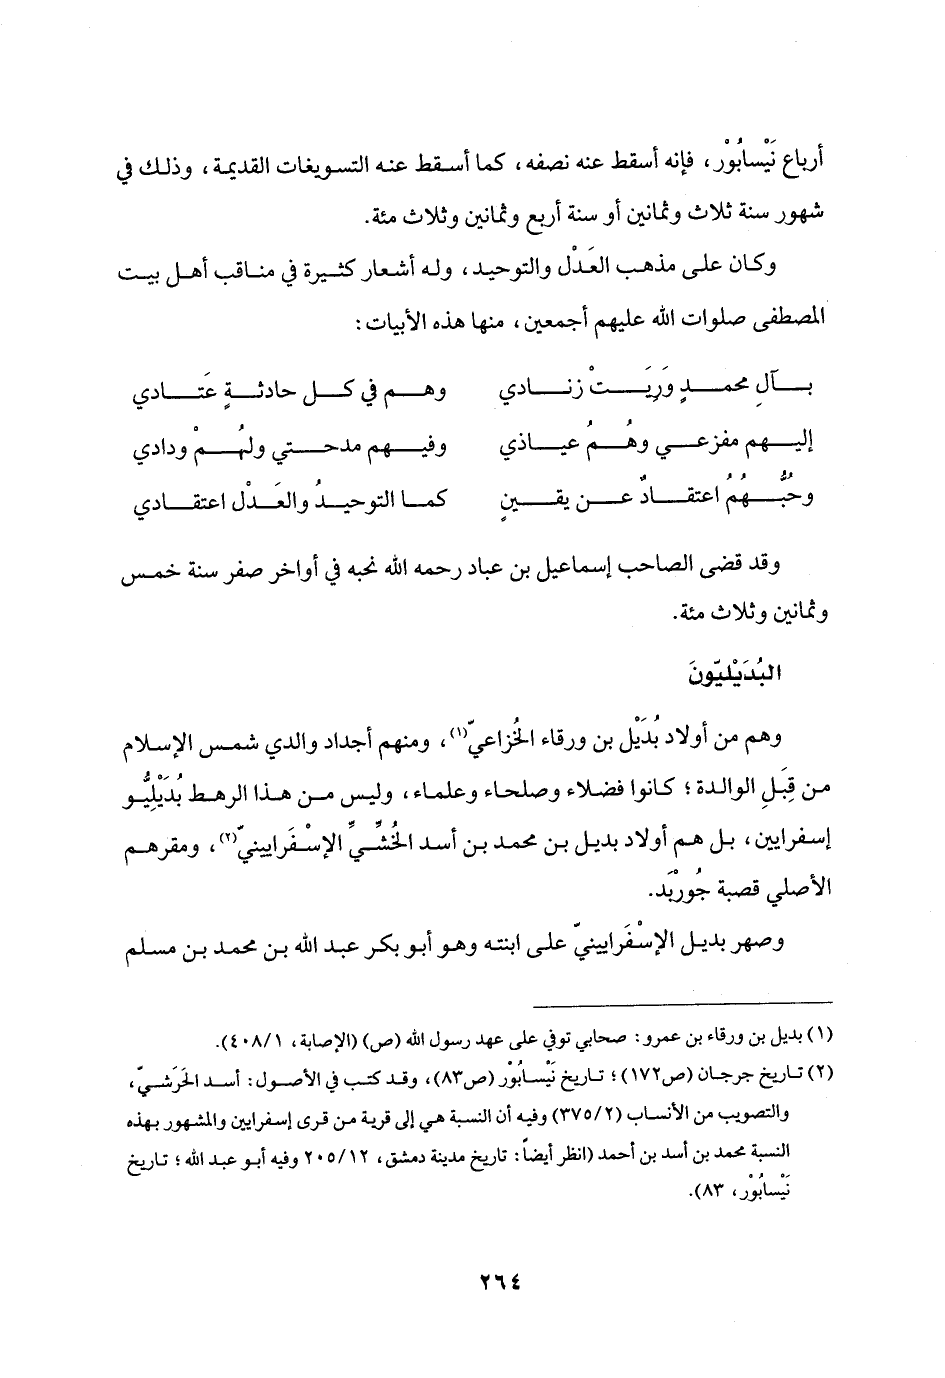 أرباع نَيْسابُوْر، فإنه أسقط عنه نصفه، كما أسقط عنه التسويغات القديمة، وذلك في
شهور سنة ثلاث وثمانين أو سنة أربع وثمانين وثلاث مئة.
وكان على مذهب العَدْل والتوحيد، وله أشعار كثيرة في مناقب أهل بيت
المصطفى صلوات الله عليهم أجمعين، منها هذه الأبيات:
بآلِ محمدٍ وَرِيَتْ زنادي وهم في كل حادثةٍ عَتادي
إليهم مفزعي وهُمُ عياذي وفيهم مدحتي ولهُمْ ودادي
وحُبُّهُمُ اعتقادٌ عن يقينٍ كما التوحيدُ والعَدْل اعتقادي
وقد قضى الصاحب إسماعيل بن عباد رحمه الله نحبه في أواخر صفر سنة خمس
وثمانين وثلاث مئة.
البُدَيْليّونَ
وهم من أولاد بُدَيْل بن ورقاء الخُزاعيّ(١)، ومنهم أجداد والدي شمس الإسلام
من قِبَلِ الوالدة؛ كانوا فضلاء وصلحاء وعلماء، وليس من هذا الرهط بُدَيْليُّو
إسفرايين، بل هم أولاد بديل بن محمد بن أسد الخُشِّيِّ الإسْفَراييني(٢)، ومقرهم
الأصلي قصبة جُورْبَد.
وصهر بديل الإسْفَرايينيّ على ابنته وهو أبو بكر عبد الله بن محمد بن مسلم
(١) بديل بن ورقاء بن عمرو: صحابي توفي على عهد رسول الله (ص) (الإصابة، ٤٠٨/١).
(٢) تاريخ جرجان (ص١٧٢)؛ تاريخ نَيْسابُوْر (ص٨٣)، وقد كتب في الأصول: أسد الحَرَشيّ،
والتصويب من الأنساب (٣٧٥/٢) وفيه أن النسبة هي إلى قرية من قرى إسفرايين والمشهور بهذه
النسبة محمد بن أسد بن أحمد (انظر أيضاً: تاريخ مدينة دمشق، ٢٠٥/١٢ وفيه أبو عبد الله؛ تاريخ
نَيْسابُوْر، ٨٣).
٢٦٤